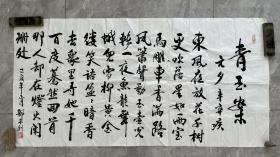 青玉案
元夕辛弃疾
東風夜放花千树
更吹落星如雨宝
馬雕車香满路
风箫聲動玉壶光
转一夜魚龍舞
蛾兒雪柳黄金
缕笑語盈盈暗香
去衆里尋他千
百度蓦然回首
那人却在燈火阑
珊处